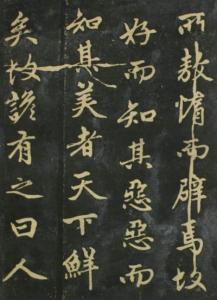 所敖惰而辟焉故
好而知其惡惡而
知其美者天下鮮
矣故諺有之曰人